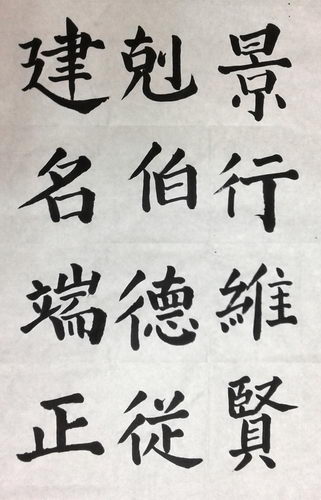 景行維賢
剋伯德從
建名端正